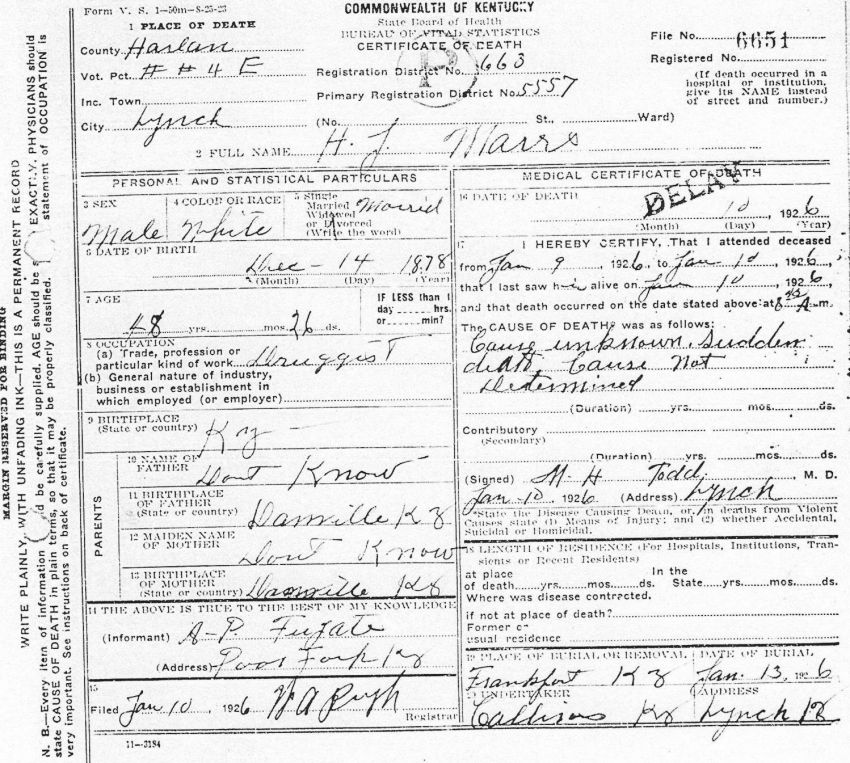 Form V. S. 1—50m—8-25-23
COMMONWEALTH OF KENTUCKY
State Board of Health
BUREAU OF VITAL STATISTICS
CERTIFICATE OF DEATH
1 PLACE OF DEATH
County Harlan
Vot. Pct. # #4 E
Inc. Town
City Lynch
Registration District No. 663
Primary Registration District No. 5557
(No. St., Ward)
File No. 6651
Registered No.
(If death occurred in a
hospital or institution,
give its NAME instead
of street and number.)
2 FULL NAME H. J. Marrs
PERSONAL AND STATISTICAL PARTICULARS
3 SEX
Male
4 COLOR OR RACE
White
5 Single
Married
Widowed
or Divorced
(Write the word)
Married
6 DATE OF BIRTH
Dec — 14 1878
(Month) (Day) (Year)
7 AGE
48 yrs. mos. 26 ds.
IF LESS than 1
day hrs.
or min?
8 OCCUPATION
(a) Trade, profession or
particular kind of work Druggist
(b) General nature of industry,
business or establishment in
which employed (or employer)
9 BIRTHPLACE
(State or country) Ky
PARENTS
10 NAME OF
FATHER Dont Know
11 BIRTHPLACE
OF FATHER
(State or country) Danville Ky
12 MAIDEN NAME
OF MOTHER Dont Know
13 BIRTHPLACE
OF MOTHER
(State or country) Danville Ky
14 THE ABOVE IS TRUE TO THE BEST OF MY KNOWLEDGE
(Informant) A-P. Fugate
(Address) Poor Fork Ky
15
Filed Jan 10, 1926 W A Pugh
Registrar
11—3184
MEDICAL CERTIFICATE OF DEATH
DELAY
16 DATE OF DEATH
10, 1926
(Month) (Day) (Year)
17 I HEREBY CERTIFY, That I attended deceased
from Jan 9, 1926, to Jan 10, 1926,
that I last saw him alive on Jan 10, 1926,
and that death occurred on the date stated above at 8 45 A m.
The CAUSE OF DEATH* was as follows:
Cause unknown. Sudden
death, Cause Not
Determined
(Duration) yrs. mos. ds.
Contributory
(Secondary)
(Duration) yrs. mos. ds.
(Signed) M. H Todd, M. D.
Jan 10, 1926 (Address) Lynch
*State the Disease Causing Death, or, in deaths from Violent
Causes state (1) Means of Injury; and (2) whether Accidental,
Suicidal or Homicidal.
18 LENGTH OF RESIDENCE (For Hospitals, Institutions, Tran-
sients or Recent Residents)
at place In the
of death yrs. mos. ds. State yrs. mos. ds.
Where was disease contracted.
if not at place of death?
Former or
usual residence
19 PLACE OF BURIAL OR REMOVAL
Frankfort Ky
DATE OF BURIAL
Jan. 13, 1926
20 UNDERTAKER
Ky
ADDRESS
Lynch Ky
MARGIN RESERVED FOR BINDING
WRITE PLAINLY, WITH UNFADING INK—THIS IS A PERMANENT RECORD
N. B.—Every item of information should be carefully supplied. AGE should be EXACTLY. PHYSICIANS should
state CAUSE OF DEATH in plain terms, so that it may be properly classified. statement of OCCUPATION is
very important. See instructions on back of certificate.